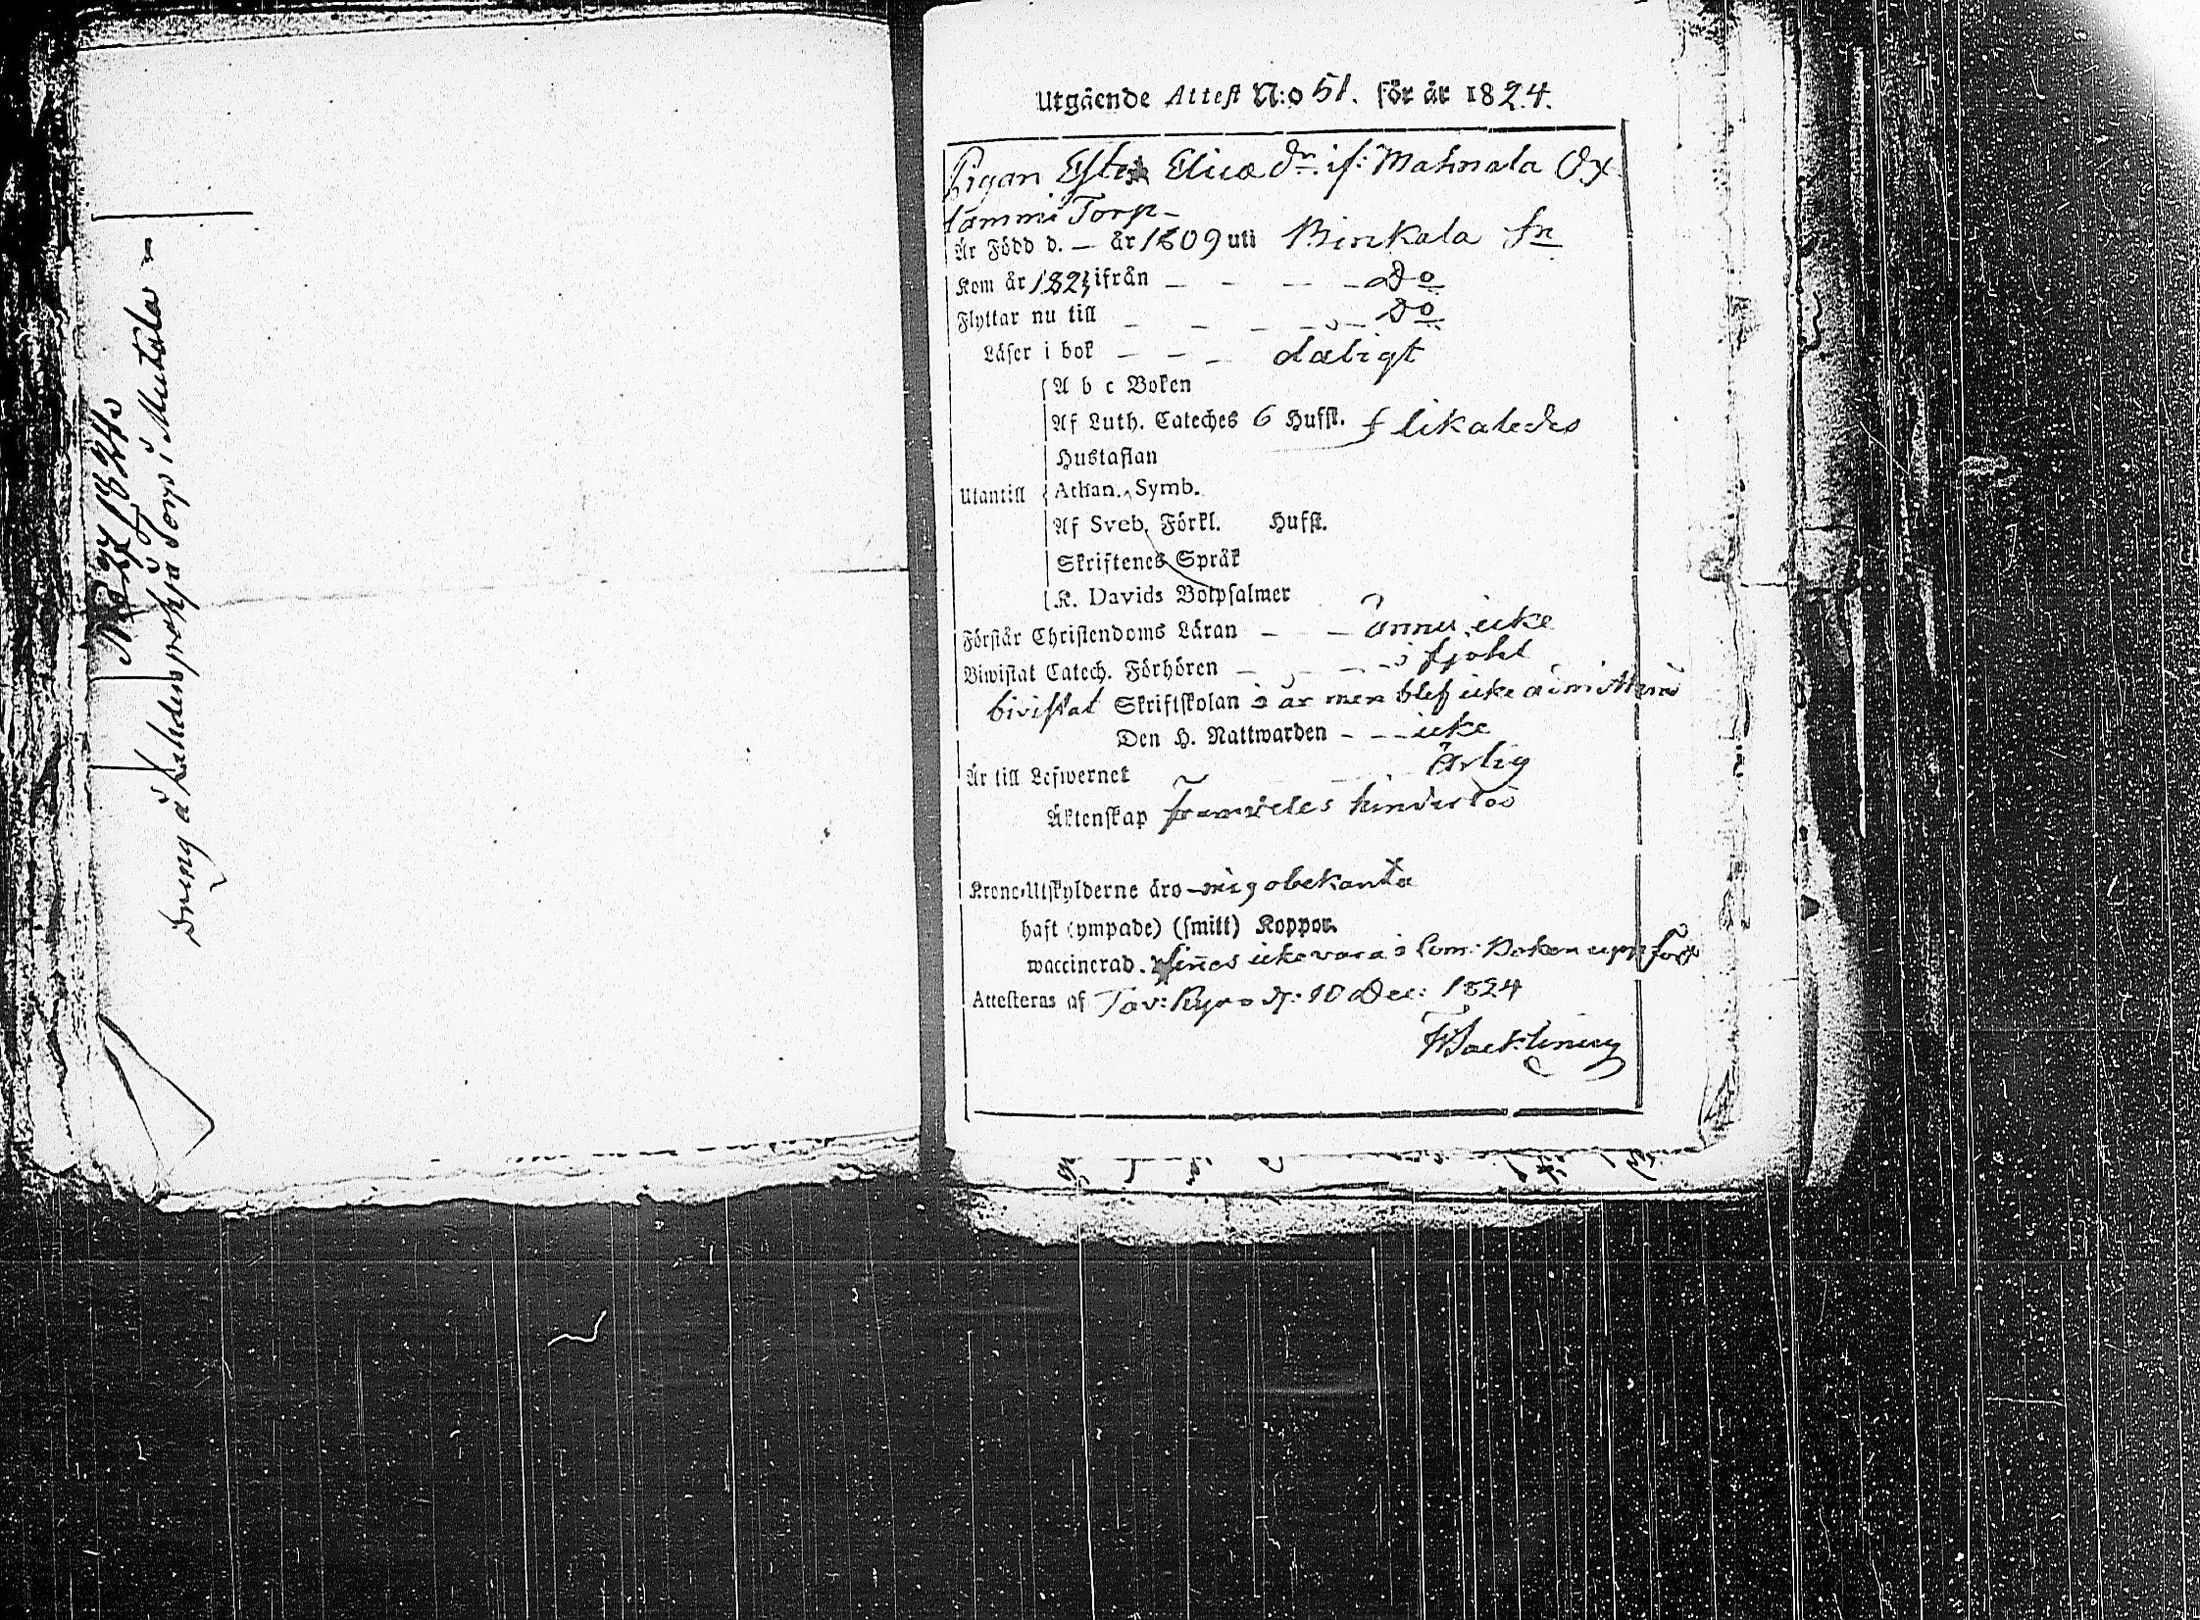 N:o 37 1824.
Dräng å Torp i Mutala
Utgående Attest N:o 51. för år 1824.
Pigan Ester Elicæ dr. if: Mahnala Ox
lammi Torp
Är Född d. — år 1809 uti Birckala sn
Kom år 1823 ifrån — — — — do
Flyttar nu till — — — — — do
Läser i bok — — — dåligt
A b c Boken
Af Luth. Cateches 6 Hufst. likaledes
Hustaflan
Utantill Athan. Symb.
Af Sveb. Förkl. Hufst.
Skriftenes Språk
K. Davids Botpsalmer
Förstår Christendoms Läran — — ännu icke
Biwistat Catech. Förhören — — — i fjohl
bivistat Skriftskolan i år men blef icke admitterad
Den H. Nattwarden - - - icke
Är till Lefwernet — — ärlig
Äktenskap fremdeles hinderlös
Krono-Utskylderne äro mig obekanta
haft (ympade) (smitt) Koppor.
waccinerad. finnes icke vara i Com: Boken uppförd
Attesteras af Tav: Kyro d: 10 Dec: 1824